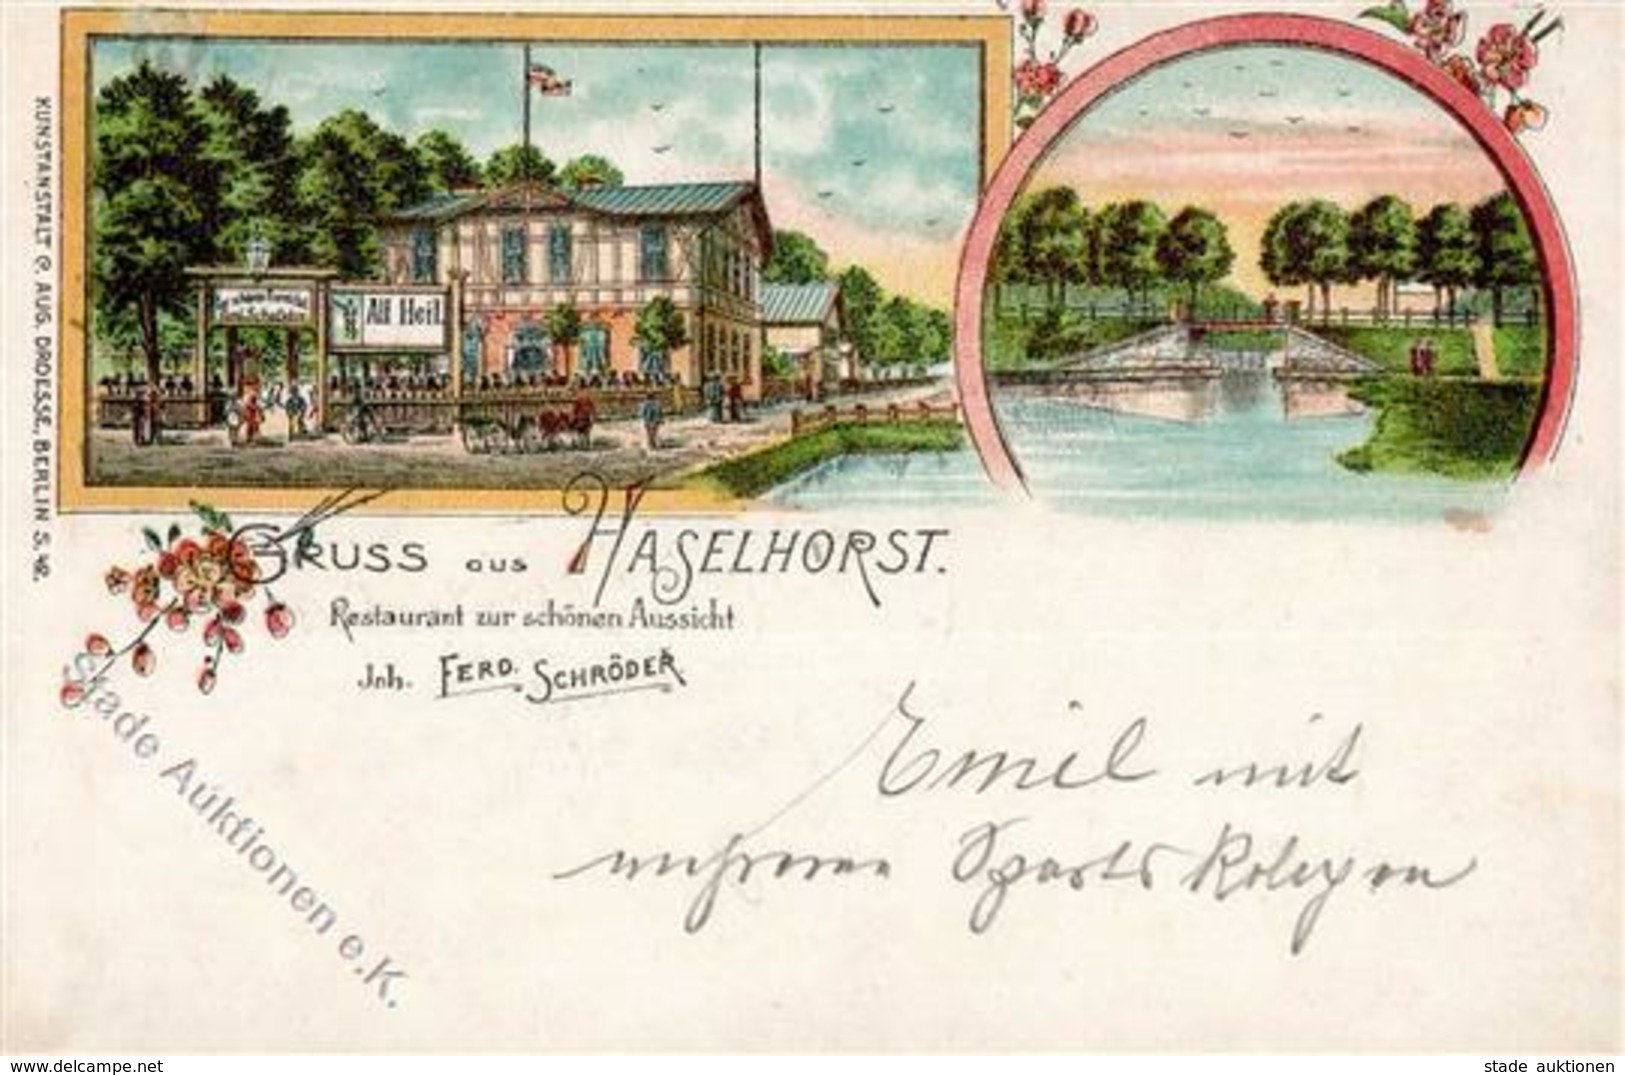 KUNSTANSTALT C. AUG. DROESSE, BERLIN S. 42.
All Heil
GRUSS aus HASELHORST.
Restaurant zur schönen Aussicht
Inh. FERD. SCHRÖDER
Emil mit
mehreren Sports Kolegen
Stade Auktionen e.K.
www.delcampe.net
stade auktionen